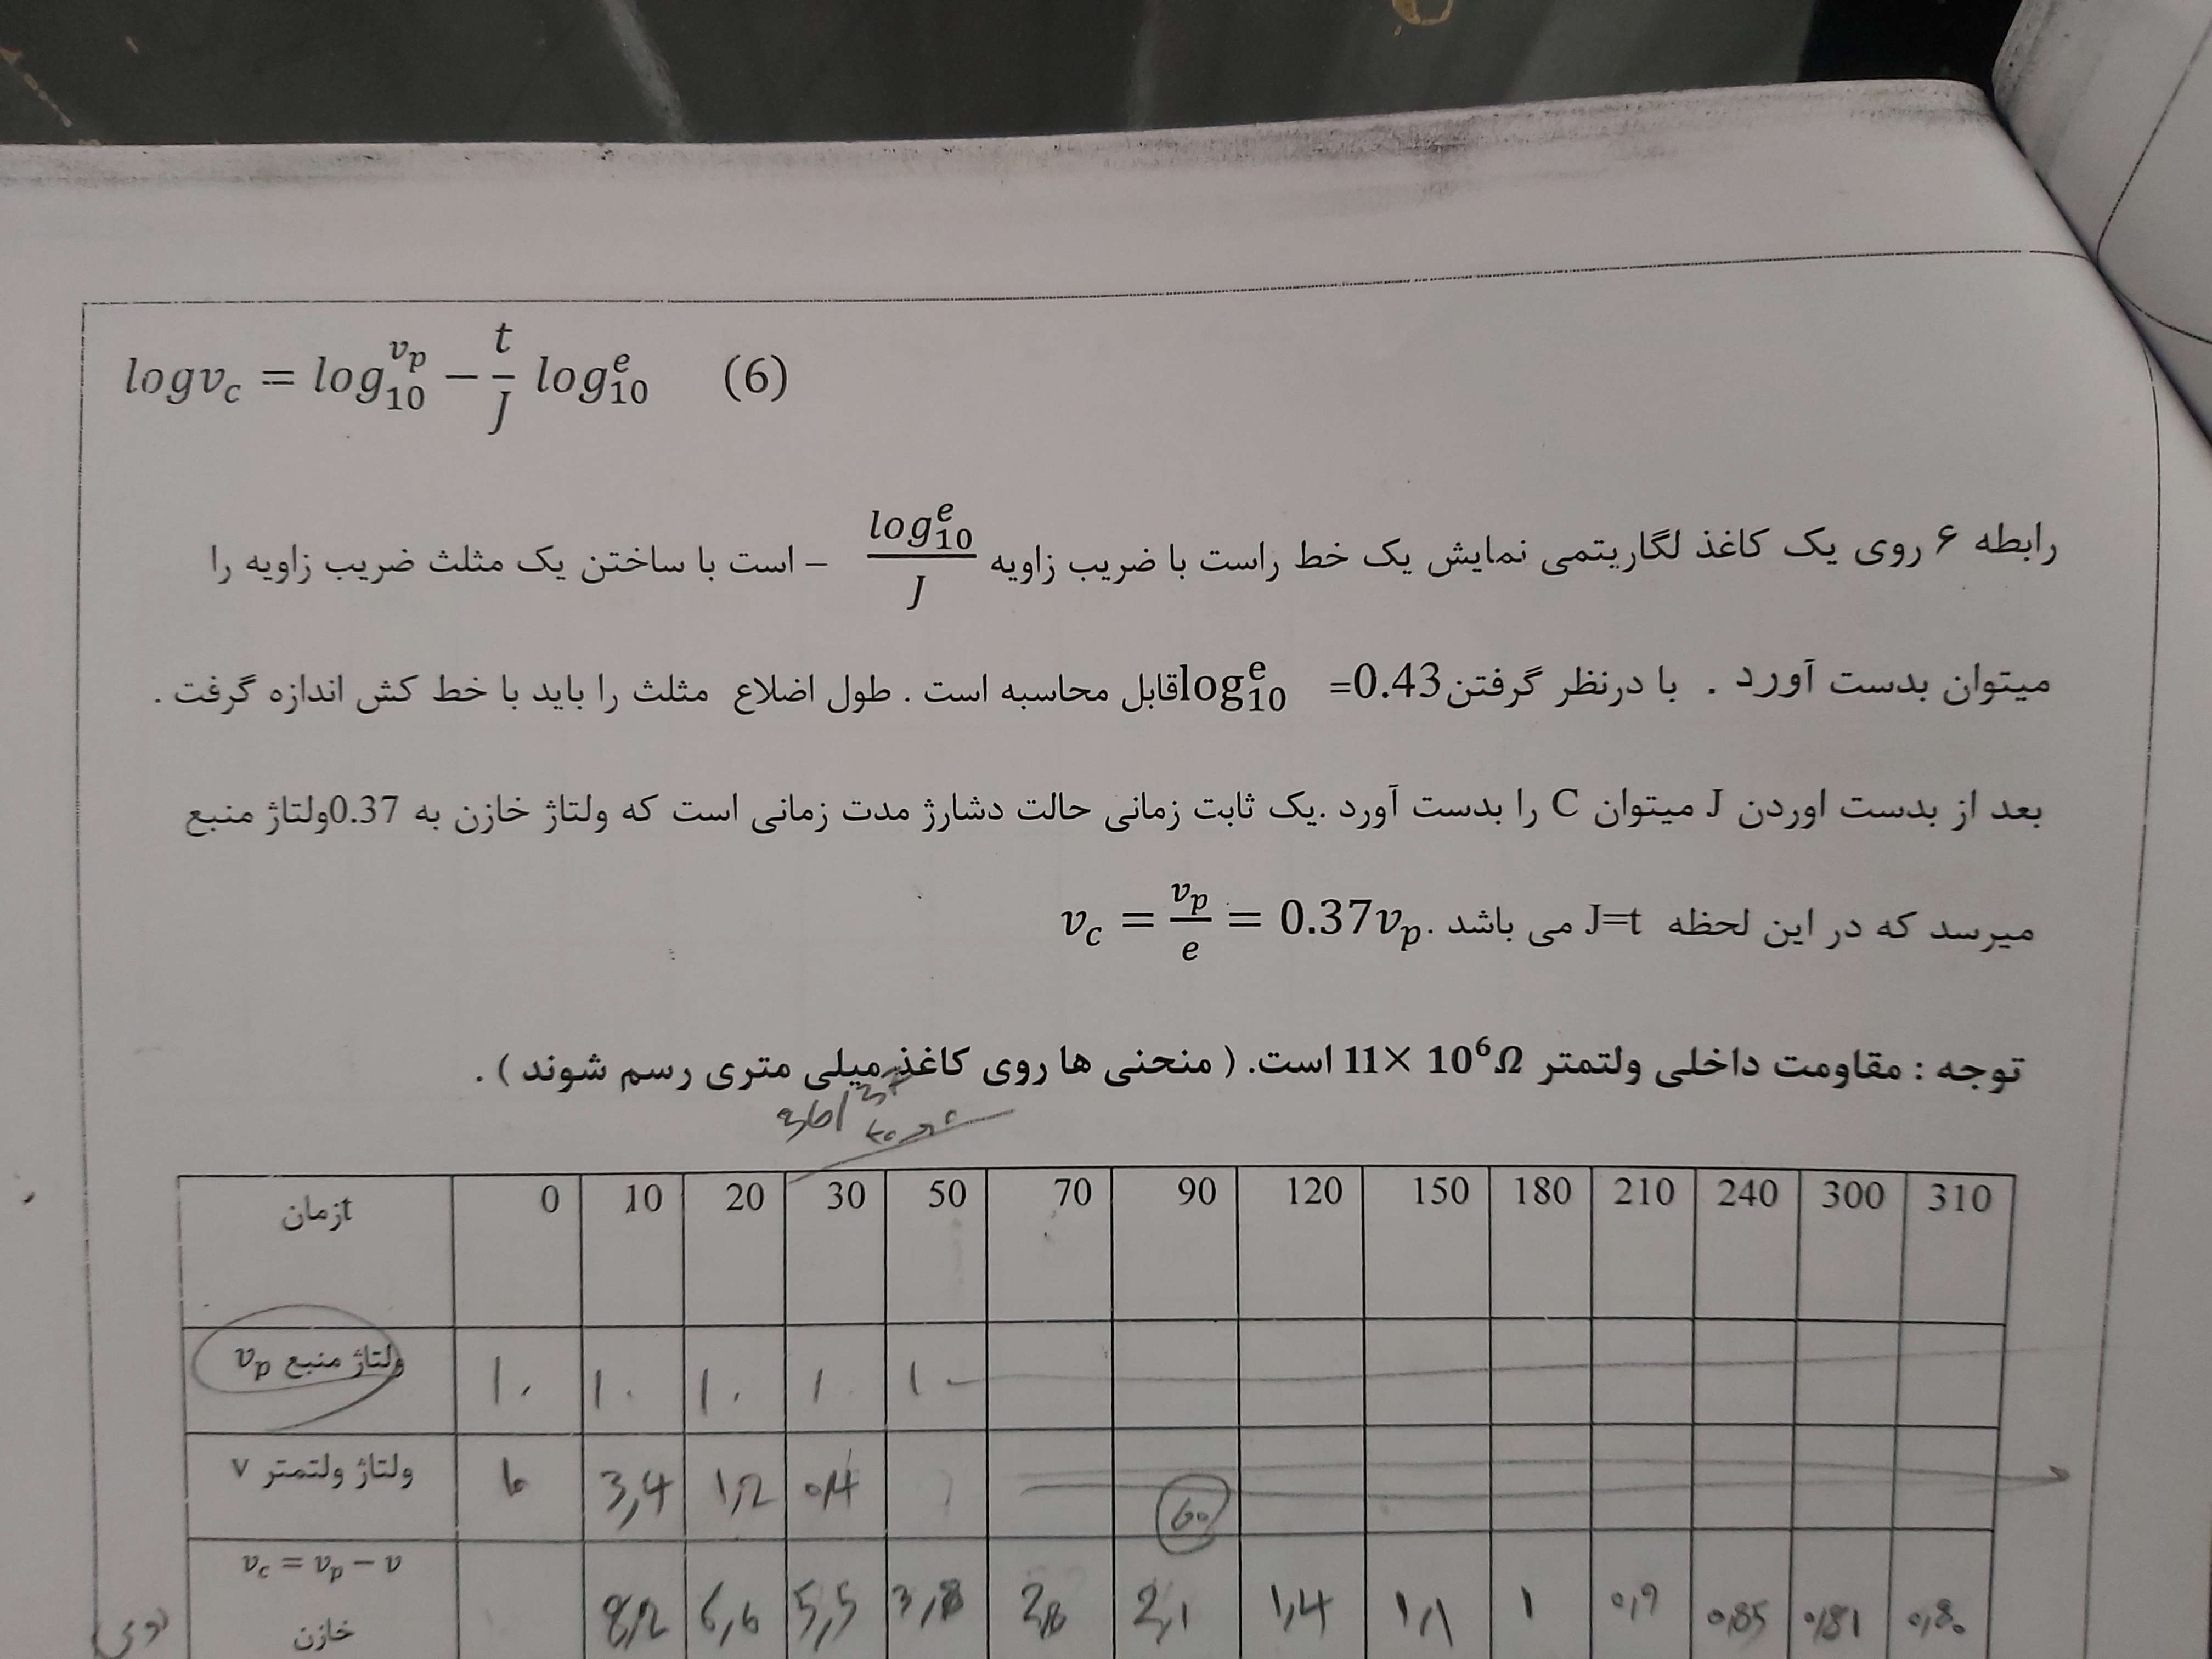 logv_c = log_{10}^{v_p} − \frac{t}{J} log_{10}^{e} (6)
رابطه ۶ روی یک کاغذ لگاریتمی نمایش یک خط راست با ضریب زاویه \frac{log_{10}^{e}}{J} – است با ساختن یک مثلث ضریب زاویه را
میتوان بدست آورد . با درنظر گرفتن 0.43= log_{10}^{e} قابل محاسبه است . طول اضلاع مثلث را باید با خط کش اندازه گرفت .
بعد از بدست اوردن J میتوان C را بدست آورد .یک ثابت زمانی حالت دشارژ مدت زمانی است که ولتاژ خازن به 0.37ولتاژ منبع
میرسد که در این لحظه J=t می باشد . v_c = \frac{v_p}{e} = 0.37v_p
توجه : مقاومت داخلی ولتمتر 11 × 10^6 Ω است. (منحنی ها روی کاغذ میلی متری رسم شوند) .
tزمان 0 10 20 30 50 70 90 120 150 180 210 240 300 310
ولتاژ منبع v_p ۱۰ ۱۰ ۱۰ ۱ ۱
ولتاژ ولتمتر v 3,4 1,2
v_c = v_p − v
خازن 8,2 6,6 5,5 2,1 1,4 1,1 1 0,9 0,85 0,81 0,80